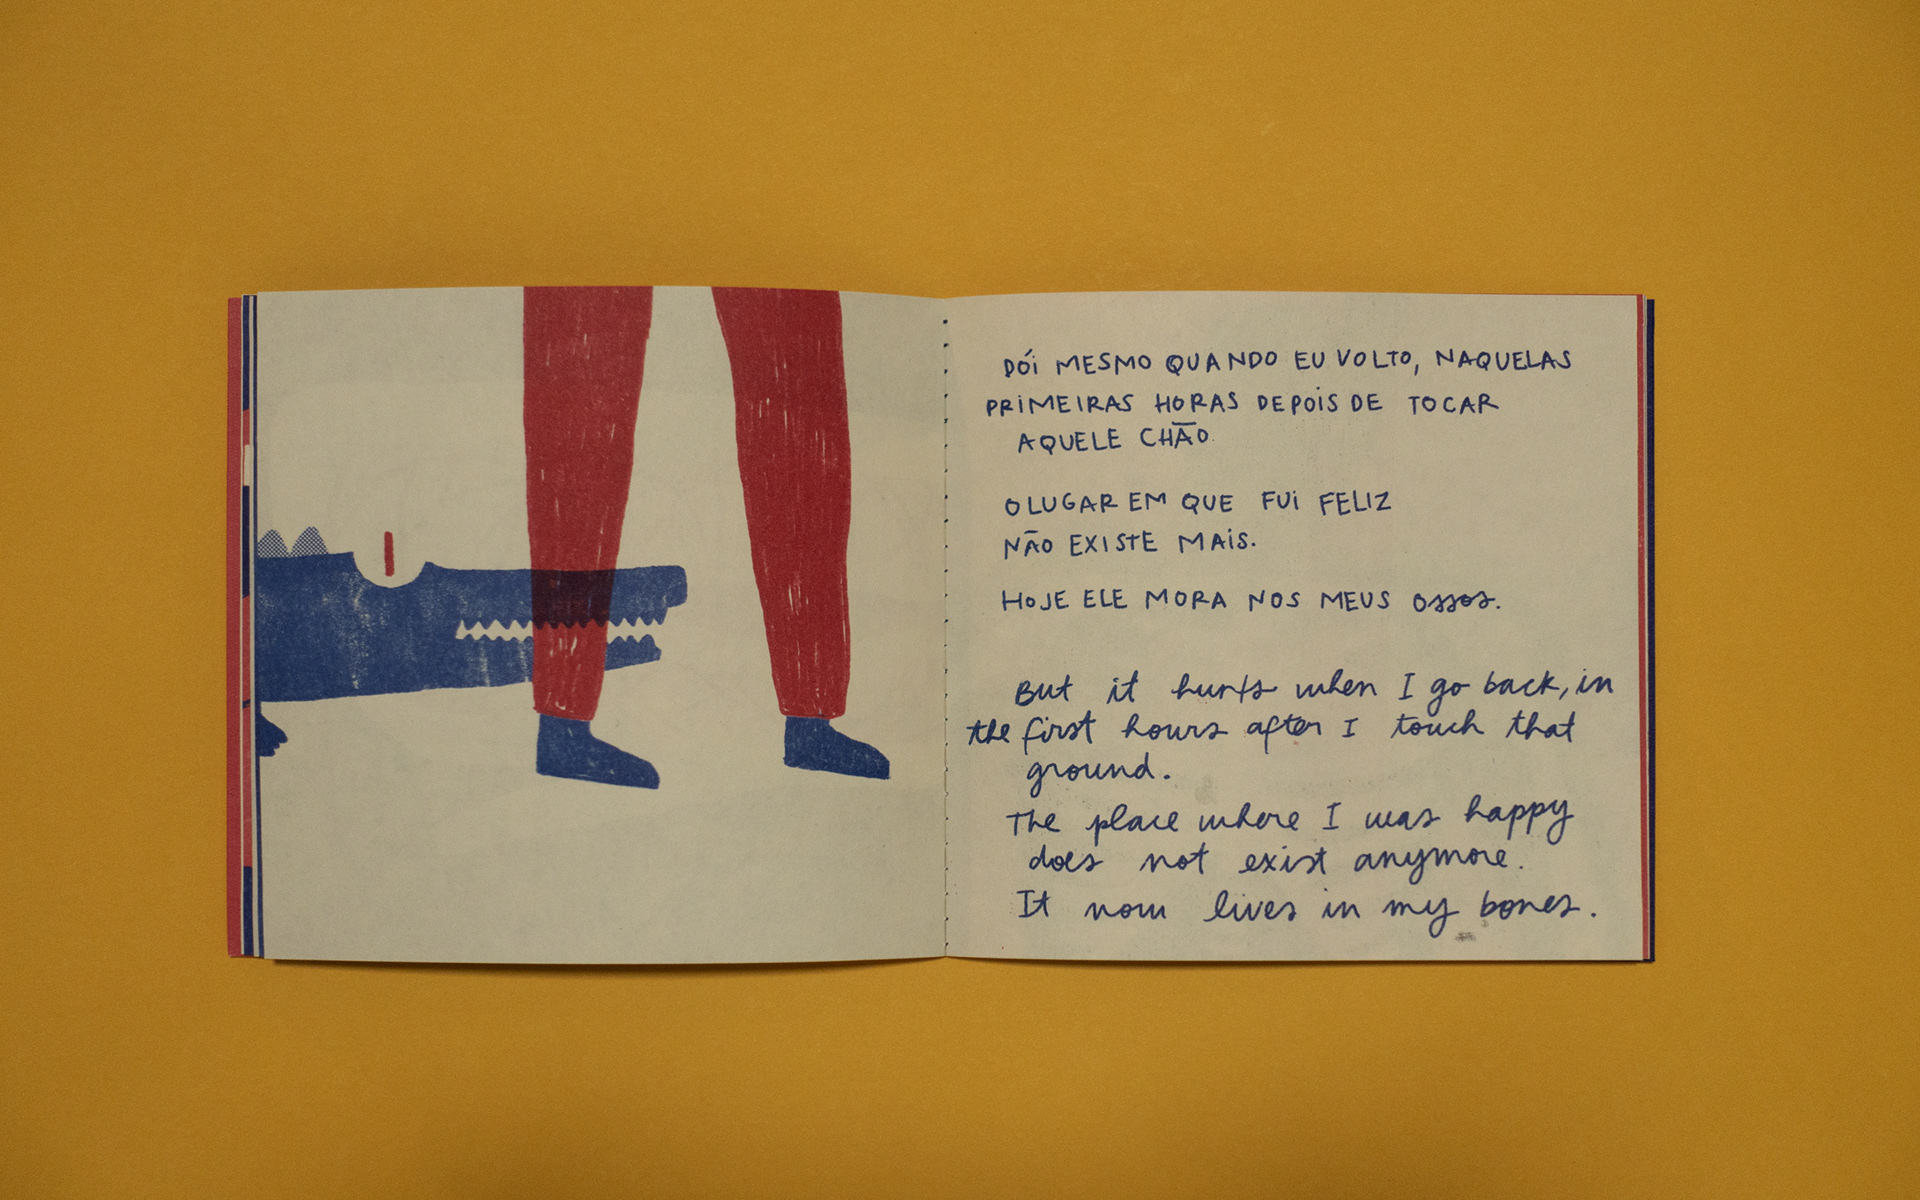 DÓI MESMO QUANDO EU VOLTO, NAQUELAS
PRIMEIRAS HORAS DEPOIS DE TOCAR
AQUELE CHÃO.
O LUGAR EM QUE FUI FELIZ
NÃO EXISTE MAIS.
HOJE ELE MORA NOS MEUS OSSOS.
But it hurts when I go back, in
the first hours after I touch that
ground.
The place where I was happy
does not exist anymore.
It now lives in my bones.